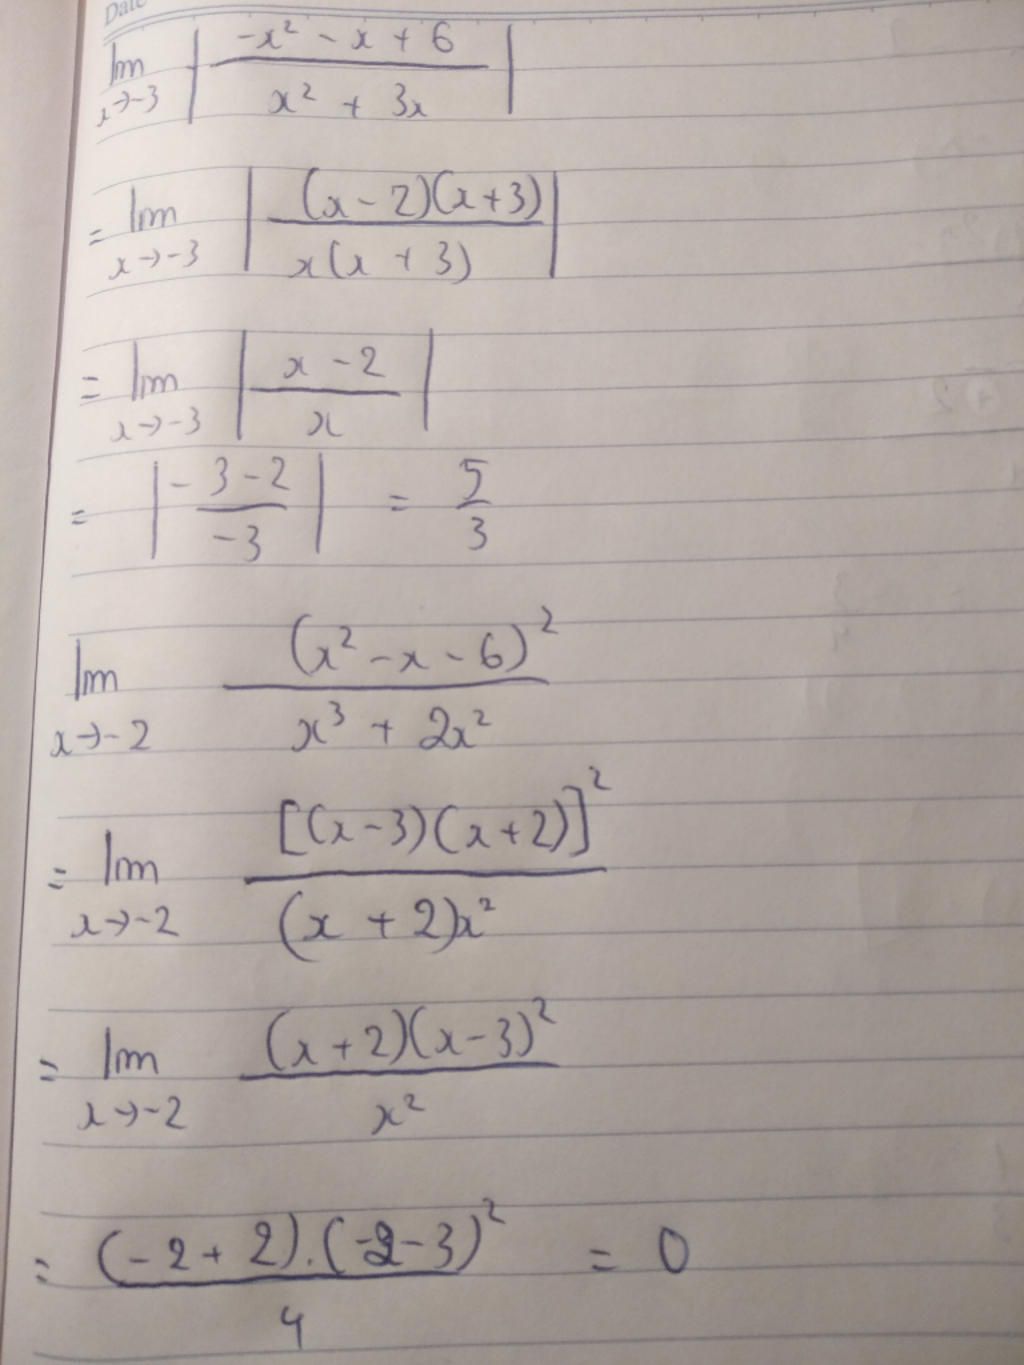 Date
lim x→-3 | (-x² - x + 6) / (x² + 3x) |
= lim x→-3 | (x - 2)(x + 3) / x(x + 3) |
= lim x→-3 | (x - 2) / x |
= | (-3 - 2) / -3 | = 5/3
lim x→-2 (x² - x - 6)² / (x³ + 2x²)
= lim x→-2 [(x - 3)(x + 2)]² / (x + 2)x²
= lim x→-2 (x + 2)(x - 3)² / x²
= (-2 + 2).(-2 - 3)² / 4 = 0